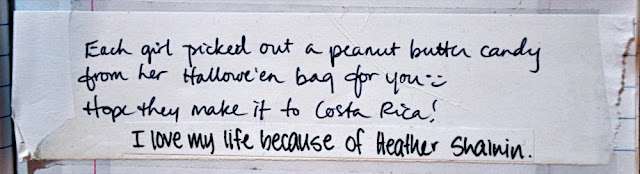 Each girl picked out a peanut butter candy
from her Hallowe'en bag for you :)
Hope they make it to Costa Rica!
I love my life because of Heather Shalnin.